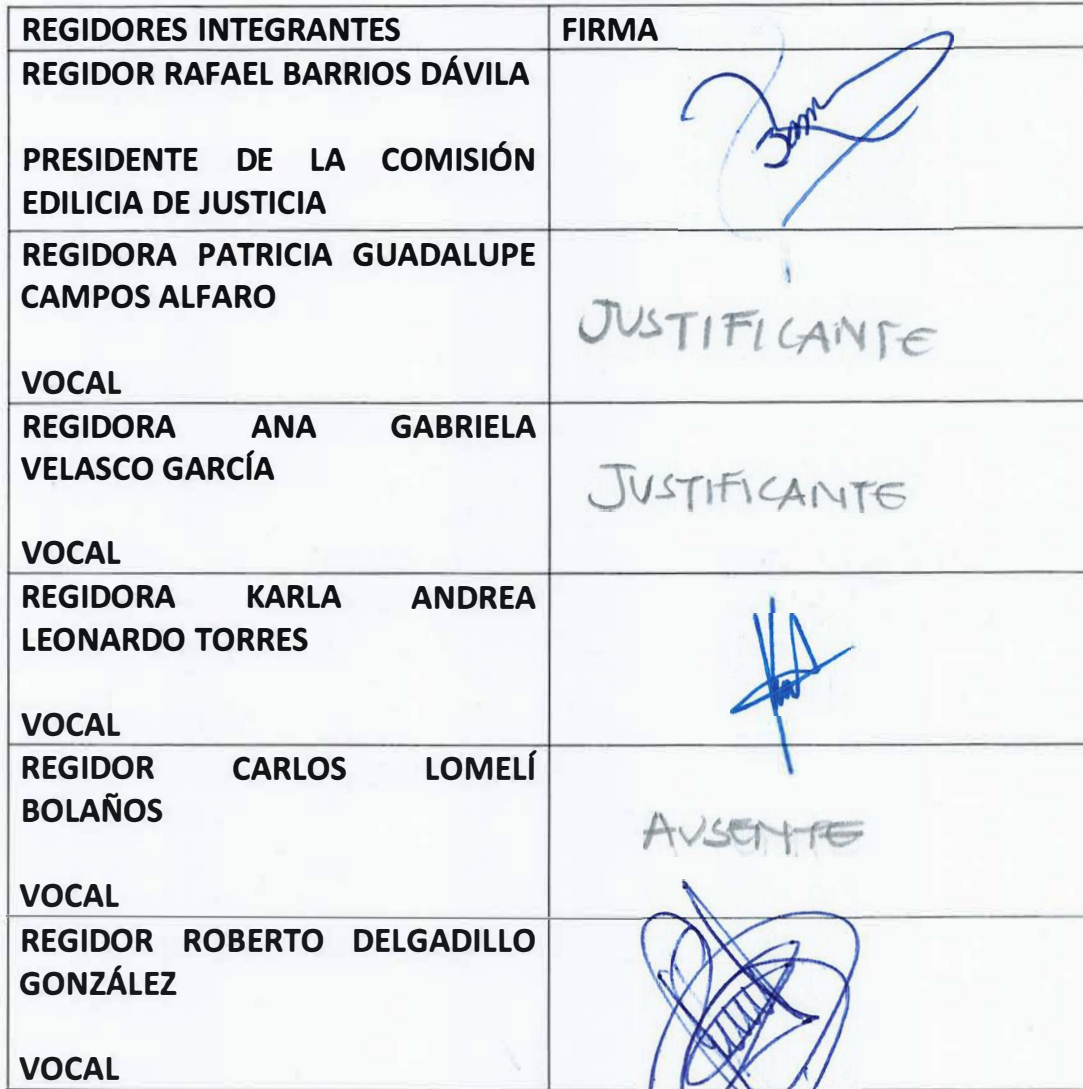 REGIDORES INTEGRANTES FIRMA
REGIDOR RAFAEL BARRIOS DÁVILA
PRESIDENTE DE LA COMISIÓN
EDILICIA DE JUSTICIA
REGIDORA PATRICIA GUADALUPE
CAMPOS ALFARO
JUSTIFICANTE
VOCAL
REGIDORA ANA GABRIELA
VELASCO GARCÍA
JUSTIFICANTE
VOCAL
REGIDORA KARLA ANDREA
LEONARDO TORRES
VOCAL
REGIDOR CARLOS LOMELÍ
BOLAÑOS
AUSENTE
VOCAL
REGIDOR ROBERTO DELGADILLO
GONZÁLEZ
VOCAL